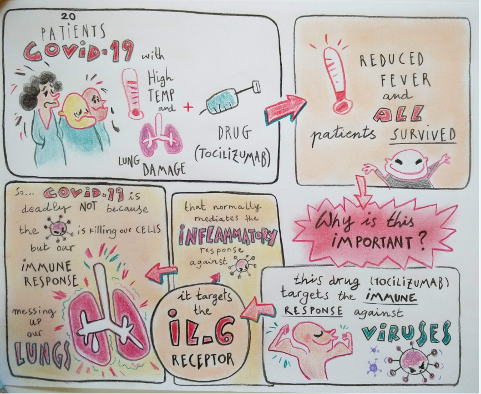 20
PATIENTS
COVID-19
with
High
TEMP
and
LUNG
DAMAGE
+
DRUG
(TOCILIZUMAB)
REDUCED
FEVER
and
ALL
patients SURVIVED
Why is this
iMPORTANT?
this drug (TOCILIZUMAB)
targets the IMMUNE
RESPONSE against
ViRUSES
it targets
the
iL-6
RECEPTOR
that normally
mediates the
iNFLAMMATORY
response
against
So... COVID-19 is
deadly NOT because
the is killing our CELLS
but our
IMMUNE
RESPONSE
messing
UP
our
LUNGS